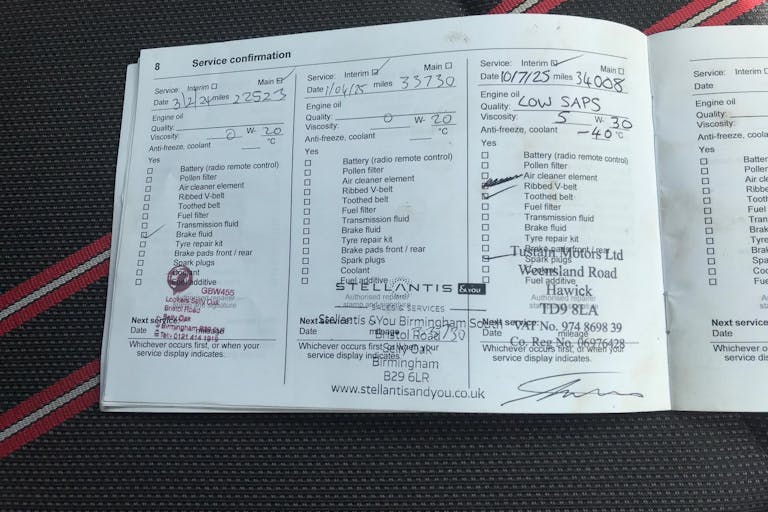 8 Service confirmation
Service: Interim ☐ Main ☑
Date 3/2/24 miles 22523
Engine oil
Quality:
Viscosity: 0 W- 20
Anti-freeze, coolant °C
Yes
Battery (radio remote control)
Pollen filter
Air cleaner element
Ribbed V-belt
Toothed belt
Fuel filter
Transmission fluid
Brake fluid
Tyre repair kit
Brake pads front / rear
Spark plugs
Coolant
Fuel additive
GBW455
Lookers Selly Oak
Bristol Road
Selly Oak
Birmingham
Tel: 0121 414
Next service:
Date mileage
Whichever occurs first, or when your
service display indicates.
Service: Interim ☑ Main ☐
Date 1/04/25 miles 33730
Engine oil
Quality:
Viscosity: 0 W- 20
Anti-freeze, coolant °C
Yes
Battery (radio remote control)
Pollen filter
Air cleaner element
Ribbed V-belt
Toothed belt
Fuel filter
Transmission fluid
Brake fluid
Tyre repair kit
Brake pads front / rear
Spark plugs
Coolant
Fuel additive
STELLANTIS &YOU
Authorised repairer
SALES & SERVICES
Stellantis &You Birmingham South
Next service:
Bristol Road
Date mileage
Selly Oak
Whichever occurs first, or when your
service display indicates.
Birmingham
B29 6LR
www.stellantisandyou.co.uk
Service: Interim ☑ Main ☐
Date 10/7/25 miles 34008
Engine oil
Quality: LOW SAPS
Viscosity: 5 W- 30
Anti-freeze, coolant -40 °C
Yes
Battery (radio remote control)
Pollen filter
Air cleaner element
Ribbed V-belt
Toothed belt
Fuel filter
Transmission fluid
Brake fluid
Tyre repair kit
Brake pads front / rear
Spark plugs
Coolant
Fuel additive
Tustain Motors Ltd
Weensland Road
Hawick
Authorised repairer
TD9 8LA
Next service:
VAT No. 974 8698 39
Date mileage
Co. Reg No. 06976428
Whichever occurs first, or when your
service display indicates.
Service: Interim
Date
Engine oil
Quality:
Viscosity:
Anti-freeze, coola
Yes
Batte
Pollen
Air cle
Ribbe
Tooth
Fuel fi
Transm
Brake
Tyre re
Brake
Spark
Coola
Fuel a
Authori
stamp a
Next service:
Date
Whichever occurs
service display ind